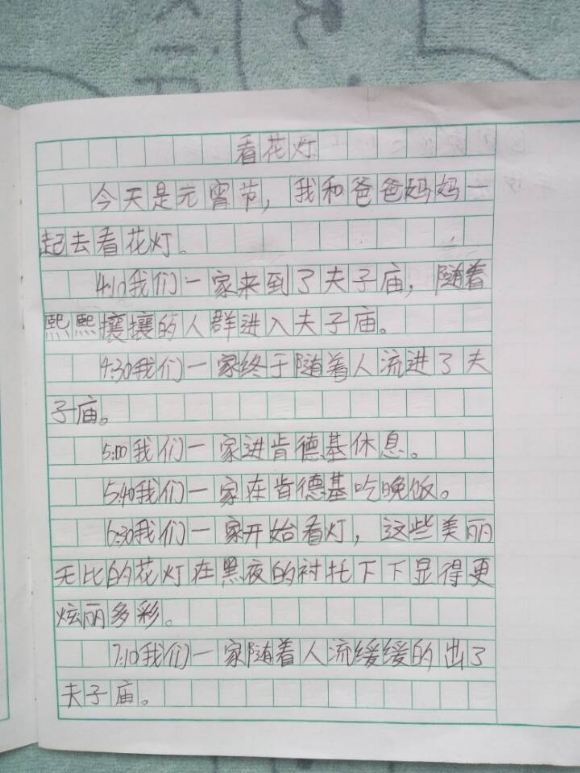 看花灯
今天是元宵节，我和爸爸妈妈一
起去看花灯。
4:10我们一家来到了夫子庙，随着
熙熙攘攘的人群进入夫子庙。
4:30我们一家终于随着人流进了夫
子庙。
5:00我们一家进肯德基休息。
5:40我们一家在肯德基吃晚饭。
6:30我们一家开始看灯，这些美丽
无比的花灯在黑夜的衬托下下显得更
炫丽多彩。
7:10我们一家随着人流缓缓的出了
夫子庙。